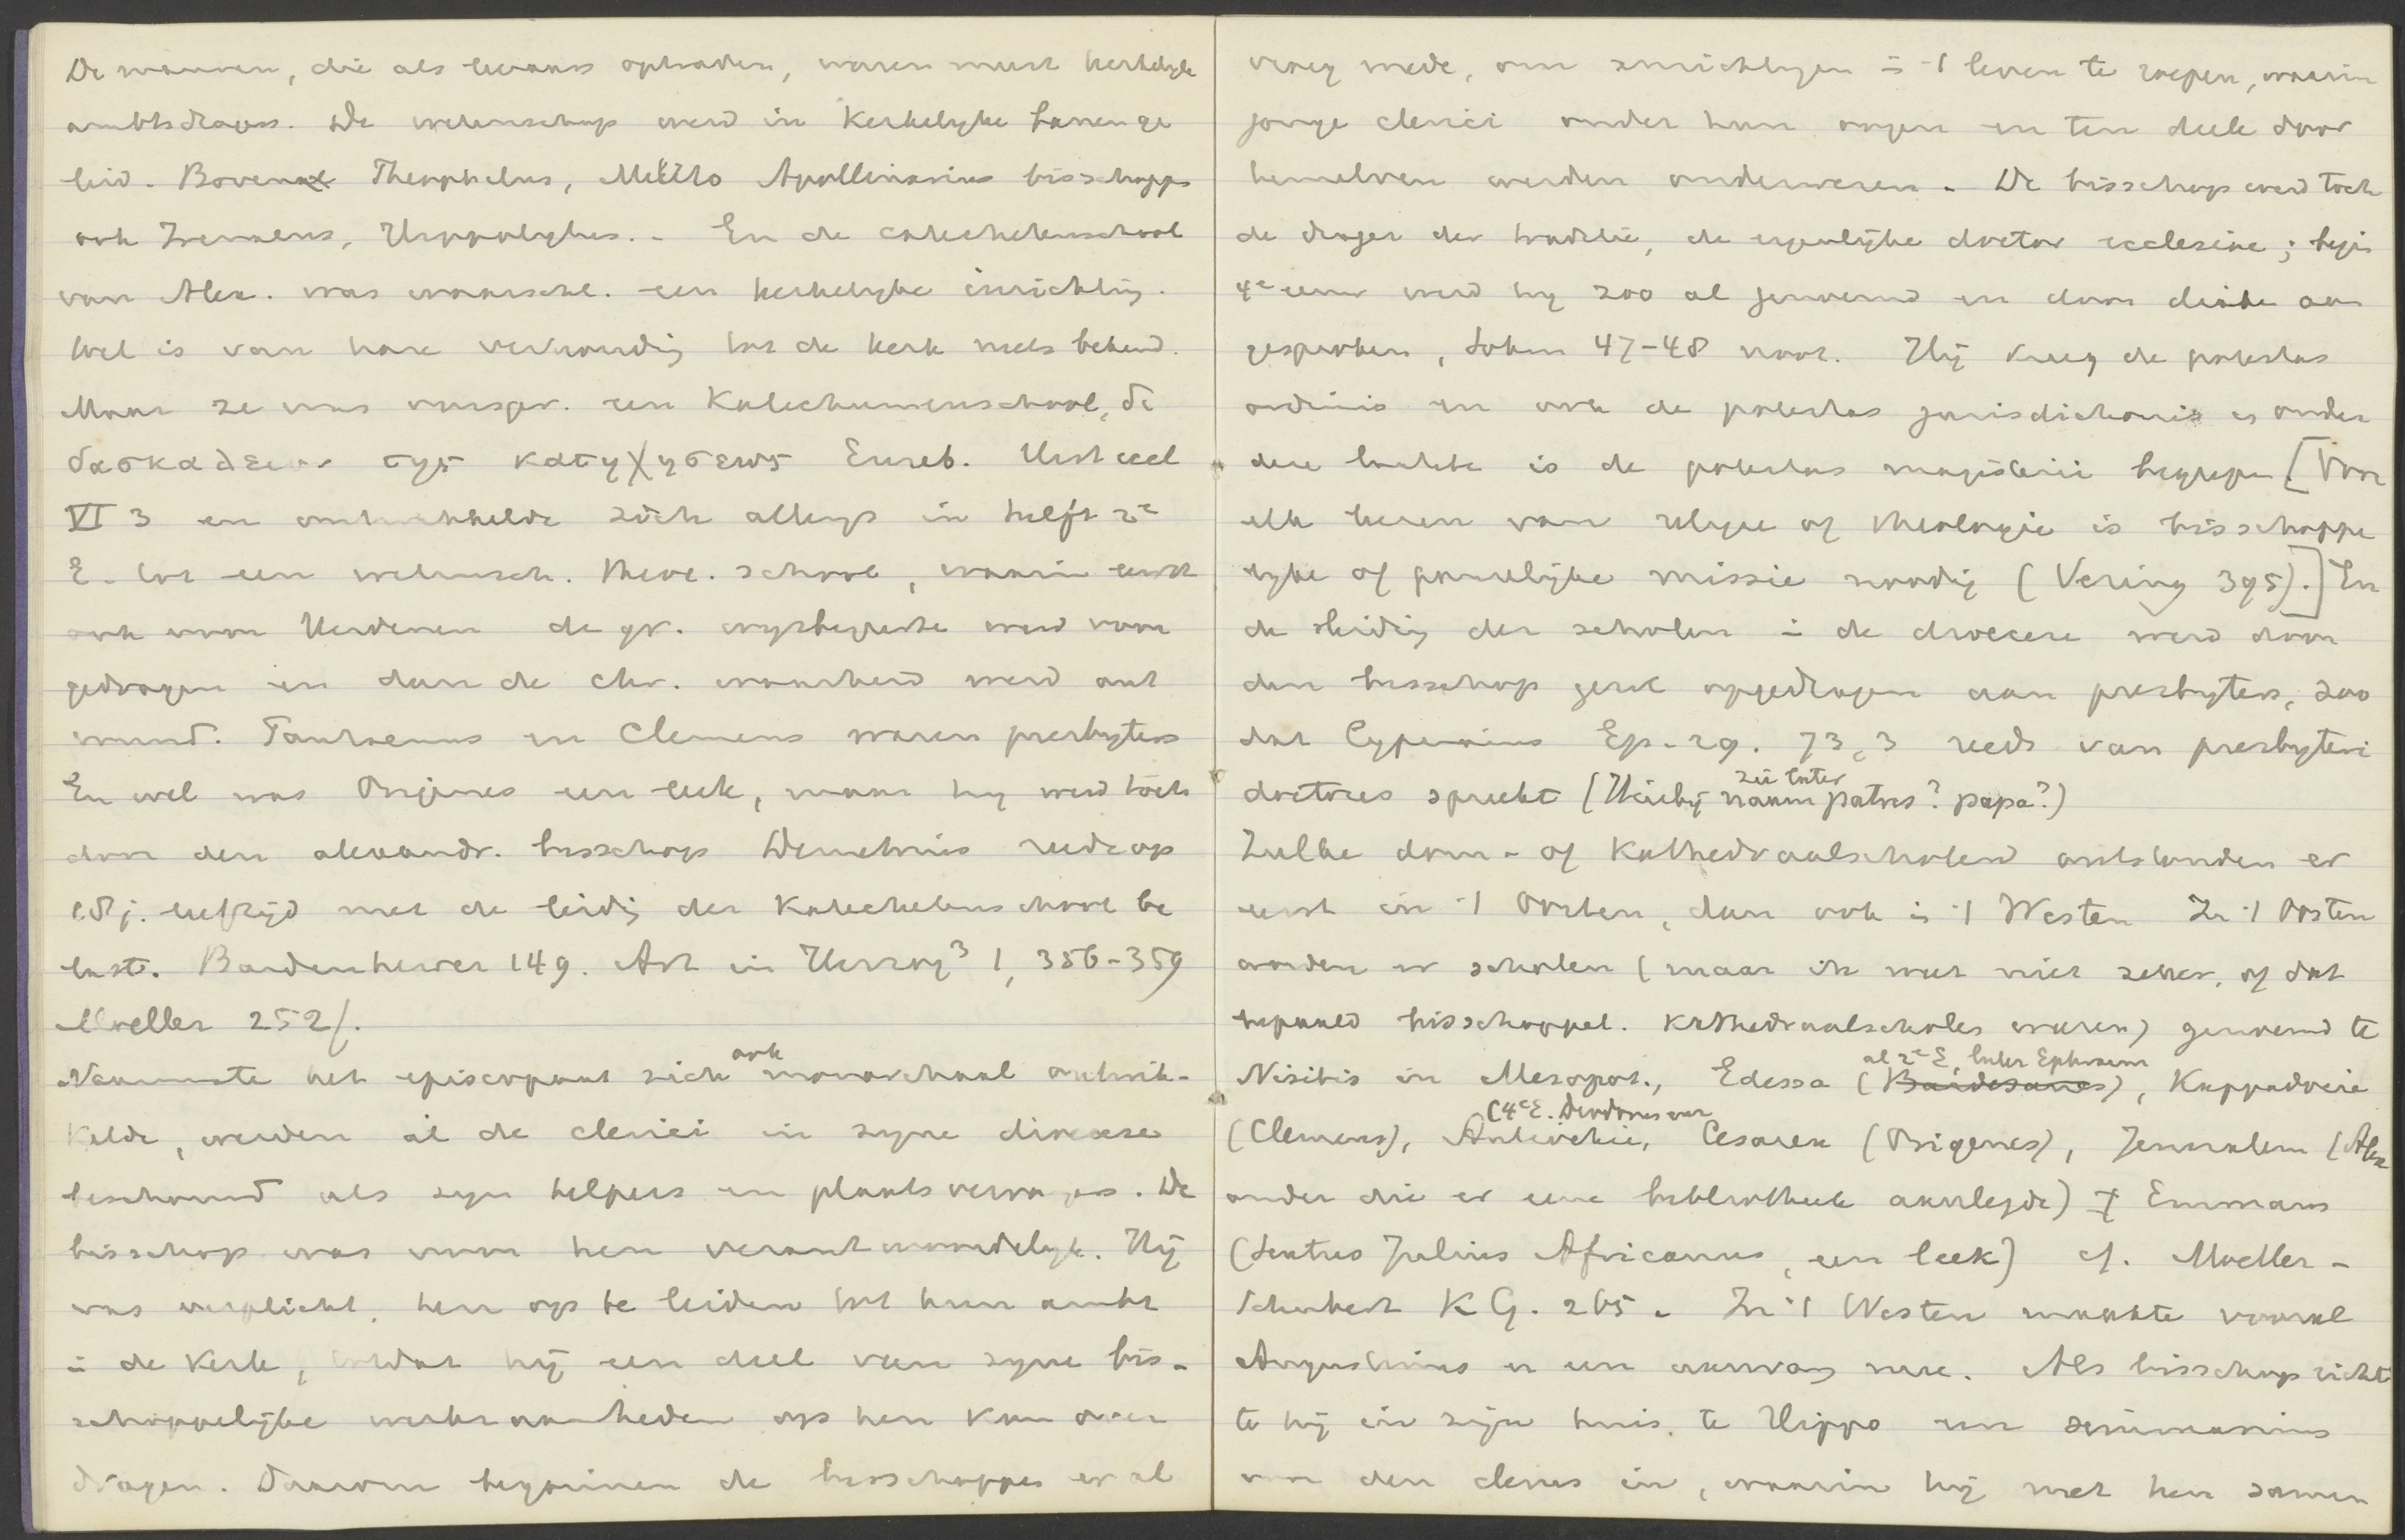 De mannen, die als leeraars optraden, waren meest kerkelyke
ambtsdragers. De wetenschap werd in kerkelyke banen ge
leid. Bovenal Theophilus, Melito Apollinarius bisschoppen
ook Irenaeus, Hippolytus. - En de catechetenschool
van Alex. was waarschl. een kerkelyke inrichting.
Wel is van hare verhouding tot de kerk niets bekend.
Maar ze was oorspr. een Katechumenschool, δι
δασκαλειον της κατηχησεως Euseb. Hist eccl
VI 3 en ontwikkelde zich allengs in helft 2e
E. tot een wetensch. theol. school, waarin eerst
ook voor Heidenen de gr. wysbegeerte werd voor
gedragen en dan de chr. waarheid werd ont
vouwd. Pantaenus en Clemens waren presbyters
En wel was Origenes een leek, maar hy werd toch
door den alexandr. bisschop Demetrius reeds op
18 j. leeftijd met de leidig der Katechetenschool be
last. Bardenhewer 149. Art in Herzog³ 1, 356-359
Moeller 252/.
Naarmate het episcopaat zich ook monarchaal ontwik-
kelde, werden al de clerici in zyne dioecese
beschouwd als zyn helpers en plaatsvervangers. De
bisschop was voor hen verantwoordelyk. Hij
was verplicht, hen op te leiden tot hun ambt
in de Kerk, omdat hij een deel van zyne bis-
schoppelijke werkzaamheden op hen kon over
dragen. Daarom beginnen de bisschoppen er al
vroeg mede, om inrichtingen in 't leven te roepen, waarin
jonge clerici onder hun oogen en ten deele door
henzelven werden onderwezen. De bisschop werd toch
de drager der traditie, de eigenlijke doctor ecclesiae; begin
4e eeuw werd hij zoo al genoemd en door aan
gesproken, Sohm 47-48 noot. Hij kreeg de potestas
ordinis en ook de potestas jurisdictionis en onder
deze laatste is de potestas magisterii begrepen [Voor
elk leeren van religie of theologie is bisschoppe
lyke of pauselijke missie noodig (Vering 395).] En
de leidig der scholen in de dioecese werd door
den bisschop gerne opgedragen aan presbyters, zoo
dat Cyprianus Ep. 29. 73,3 reeds van presbyteri
doctores spreekt (Hierbij naam patres? papa?) zie later
Zulke dom- of Kathedraalscholen ontstonden er
eerst in 't Oosten, dan ook in 't Westen In 't Oosten
worden er scholen (maar ik weet niet zeker, of dat
bepaald bisschoppel. Kathedraalscholen waren) genoemd te
Nisibis in Mesopot., Edessa (Bardesanes) al 2e E, later Ephraem, Kappadocie
(Clemens), Antiochie, (4e E. Diodorus Cesarea (Origenes), Jeruzalem (Alex
ander die er eene bibliotheek aanlegde) † Emmaus
(Sextus Julius Africanus, een leek) cf. Moeller-
Schubert KG. 265. In 't Westen maakte vooral
Augustinus er een aanvang mee. Als bisschop richt
te hij in zijn huis te Hippo een seminarium
voor den clerus in, waarin hij met hen samen